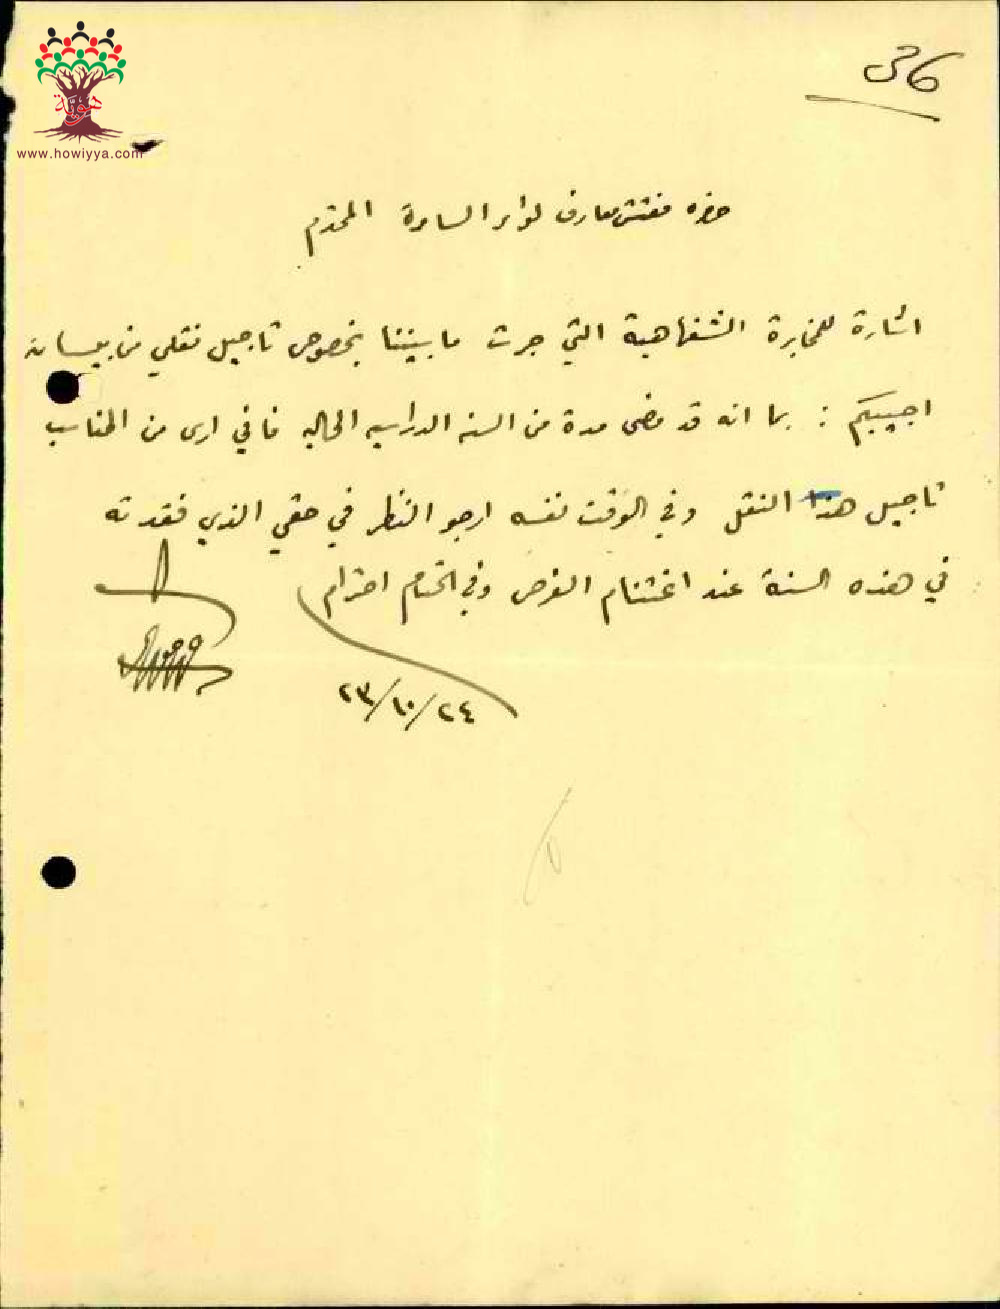 هوية
www.howiyya.com
حضره مفتش معارف لواء السامرة المحترم
اشارة للمخابرة الشفاهية التي جرت ما بيننا بخصوص تاجيل نقلي من بيسان
اجيبكم : بما انه قد مضى مدة من السنه الدراسيه الحاليه فاني ارى من المناسب
تاجيل هذا النقل وفي الوقت نفسه ارجو النظر في حقي الذي فقدته
في هذه السنة عند اغتنام الفرص وفي الختام احترام
٢٣/١٠/٢٤